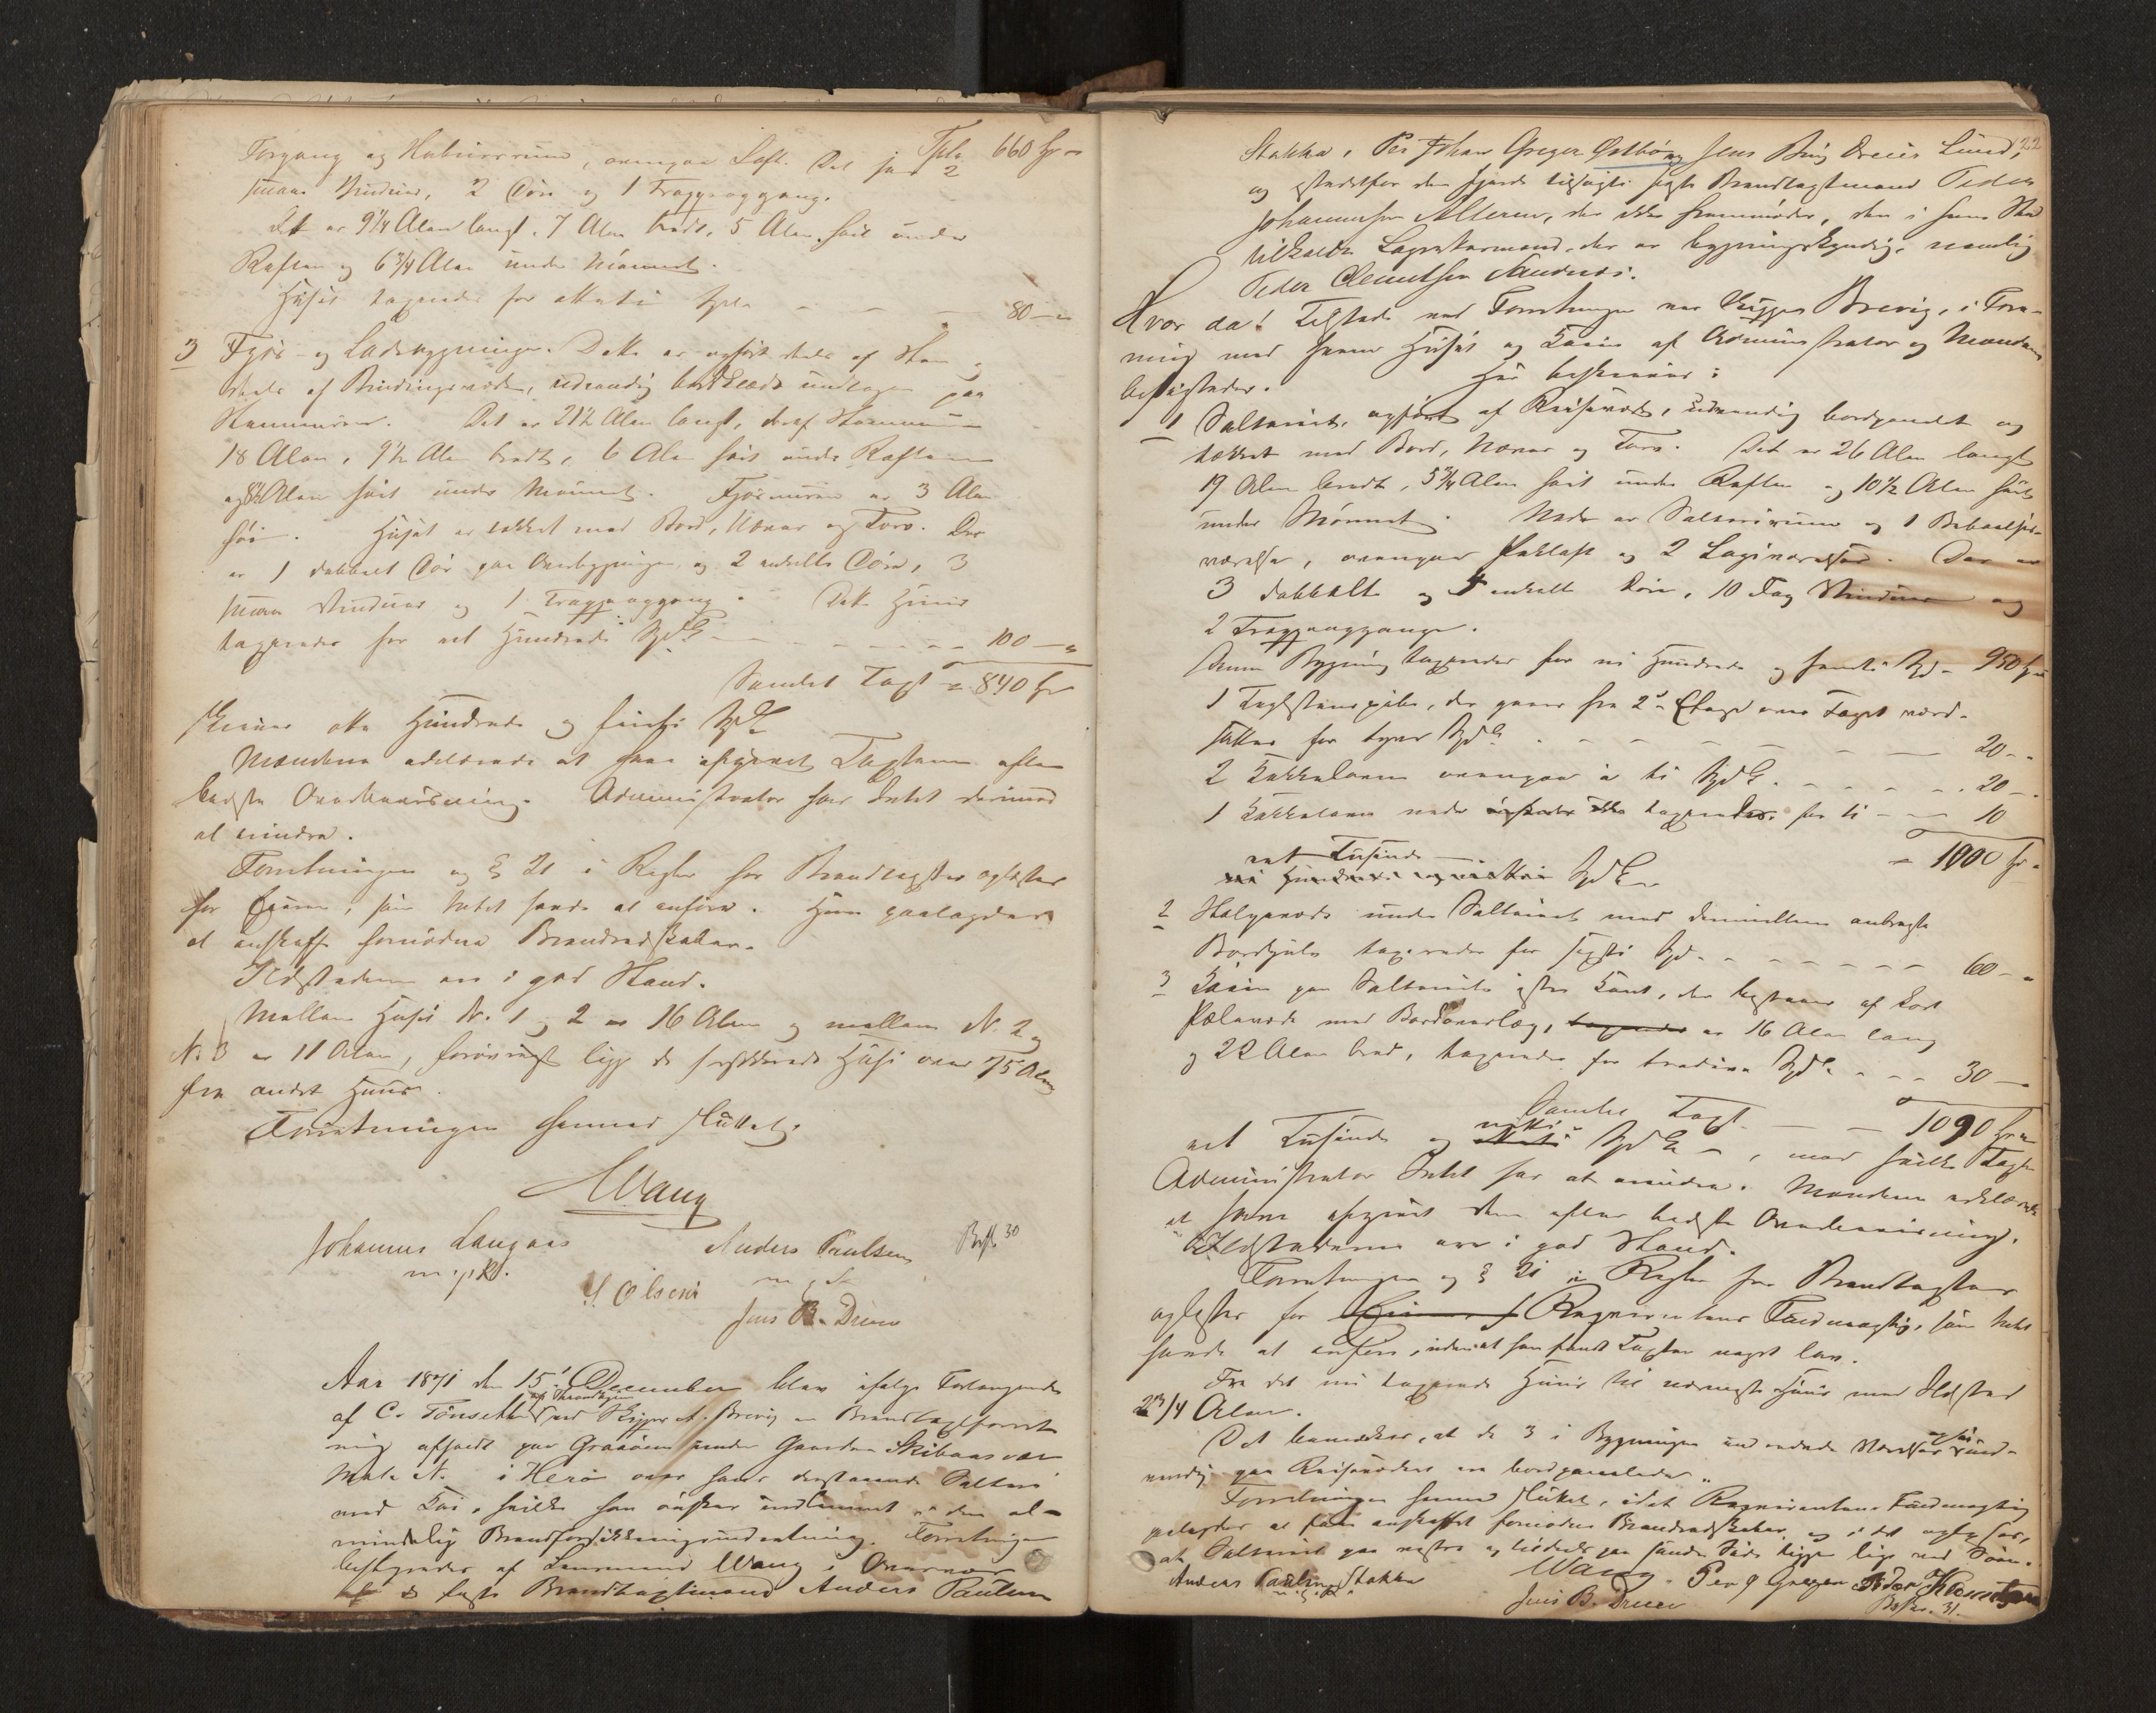 Tspt. 660 Spd
Forgang og Kaberum, ovenpaa Loft. Det har 2
smaae Vinduer, 2 Døre og 1 Trappeopgang.
Det er 9 1/4 Alen langt, 7 Alen bredt, 5 Alen høit under
Raften og 6 3/4 Alen under Mønnet.
Huset taxeredes for otteti Spd. - - - 80 -
3 Fjøs- og Ladebygningen. Dette er opført deels af Steen og
deels af Bindingsværk, udvendig bordklædt undtagen paa
Steenmuren. Det er 21 1/2 Alen langt, deraf Steenmuren
18 Alen, 9 1/2 Alen bredt, 6 Alen høit under Raften
og 8 1/2 Alen høit under Mønnet. Fjøsmuren er 3 Alen
høi. Huset er tækket med Bord, Næver og Torv. Der
er 1 dobbelt Dør paa Overbygningen og 2 enkelte Døre, 3
smaae Vinduer og 1 Trappeopgang. Dette Huus
taxeredes for eet Hundrede Spd. - - - 100 -
Samlet Taxt = 840 Spd
skriver otte Hundrede og firti Spd.
Mændene erklærede at have afgivet Taxterne efter
bedste Overbeviisning. Administrator har Intet derimod
at erindre.
Forretningen og § 21 i Regler for Brandtaxter oplæstes
for Eieren, som Intet havde at anføre. Ham paalagdes
at anskaffe fornødne Brandredskaber.
Ildstederne ere i god Stand.
Mellem Huset N. 1 og 2 er 16 Alen og mellem N. 2 og
N. 3 er 11 Alen, forøvrigt ligge de forsikkrede Huse over 75 Alen
fra andet Huus.
Forretningen hermed sluttet.
Wang
Johannes Langaas
m. p. P.
Anders Paulsen
Besk. 30
Olsen
Jens B. Drevv
Aar 1871 den 15' December blev ifølge Forlangende
af C. Tønseth af Throndhjem ved Skipper A. Brevig en Brandtaxtforret-
ning afholdt paa Graaøen under Gaarden Skibaasvær
Matr. N. i Herø over hans derstaaende Salteri
med Kai, hvilke han ønsker indlemmet i den al-
mindelig Brandforsikkringsindretning. Forretningen
bestyredes af Lensmand Wang i Overvær
af de faste Brandtaxtmænd Anders Paulsen
22
Stokka, Per Johan Greger Østbø og Jens Bing Drevs Lund,
og istedetfor den fjerde tilsagte faste Brandtaxtmand Peder
Johannesen Alteren, der ikke fremmødte, den i hans Sted
tilkaldte Lagrettesmand, der er bygningskyndig, nemlig
Peder Clemetsen Sandnes.
Hvor da! Tilstede ved Forretningen var Skipper Brevig, i Fore-
ning med hvem Huset og Kaien af Administrator og Mændene
besigtedes. Her beskrives:
1 Salteriet, opført af Reisværk, udvendig bordpanelet og
tækket med Bord, Næver og Torv. Det er 26 Alen langt
19 Alen bredt, 5 3/4 Alen høit under Raften og 10 1/2 Alen høit
under Mønnet. Nede er Salterirum og 1 Beboelses-
værelse, ovenpaa Paklaft og 2 Logiværelser. Der er
3 dobbelte og 4 enkelte Døre, 10 Fag Vinduer og
2 Trappeopgange.
Denne Bygning taxeredes for ni Hundrede og femti Spd - 950 Spd
1 Teglsteenspibe, der gaaer fra 2' Etage over Taget værd-
sættes for tyve Spd. - - - 20 -
2 Kakkelovne ovenpaa à ti Spd. - - - 20 -
1 Kakkelovn nede taxeredes for ti - - 10
eet Tusinde - = 1000 Spd
Spd
2 Stolpeværk under Salteriet med derimellem anbragte
Bordhjeler taxeredes for sexti Spd - - - 60 -
3 Kaien paa Salteriets østre Kant, der bestaaer af kort
Pæleværk med Bordoverlæg, er 16 Alen lang
og 22 Alen bred, taxeredes for tredive Spd. - - - 30 -
Samlet Taxt - - 1090 Spd
eet Tusinde og nitti Spd -, mod hvilke Taxter
Administrator Intet har at erindre. Mændene erklærede
at have afgivet dem efter bedste Overbeviisning.
Ildstederne ere i god Stand.
Forretningen og § 21 i Regler for Brandtaxter
oplæstes for Rekvirentens Fuldmægtig, som Intet
havde at anføre, uden at han fandt Taxten noget lav.
Fra det nu taxerede Huus til nærmeste Huus med Ildsted
23/4 Alen.
Det bemærkes, at de 3 i Bygningen indredede Værelser ogsaa ind-
vendig paa Reisværket ere bordpanelede.
Forretningen hermed sluttet, idet Rekvirentens Fuldmægtig
paalagdes at faae anskaffet fornødne Brandredskaber og i det oplystes,
at Salteriet paa vestre og tildeels paa søndre Side ligger lige ved Søen.
Anders Paulsen Stokka
Wang. Per J Greger Peder Klemetsen
Jens B. Drevv
Besk. 31.